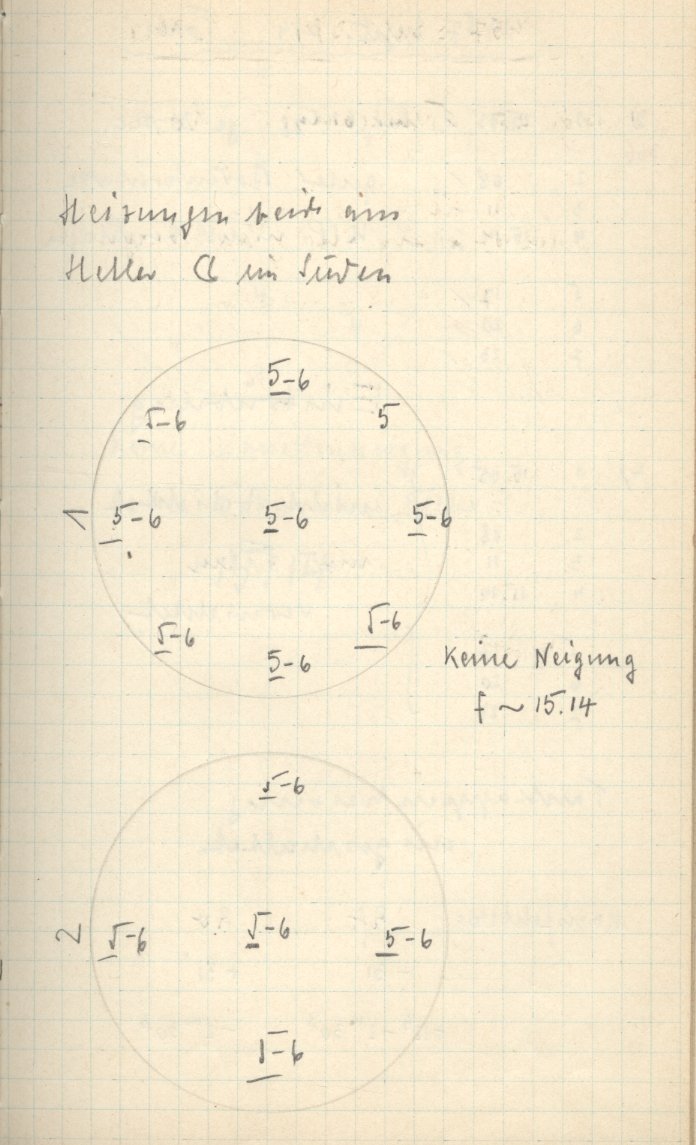 Heizungen beide ein
Heller ☾ im Süden
5-6
5-6 5
1 5-6 5-6 5-6
5-6 5-6
5-6
Keine Neigung
f ~ 15.14
5-6
2 5-6 5-6 5-6
5-6